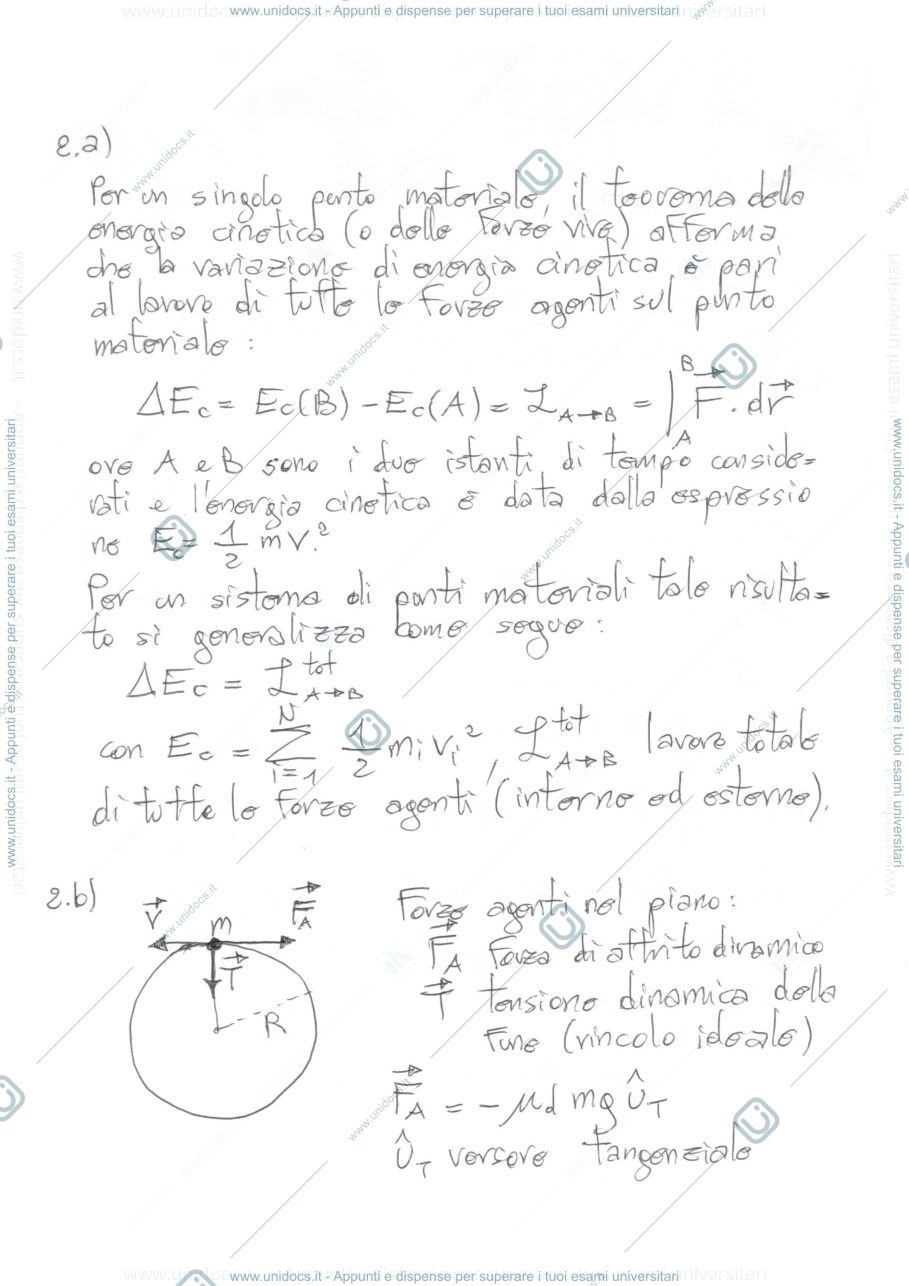 www.unidocs.it - Appunti e dispense per superare i tuoi esami universitari
2.a)
Per un singolo punto materiale, il teorema della
energia cinetica (o delle forze vive) afferma
che la variazione di energia cinetica è pari
al lavoro di tutte le forze agenti sul punto
materiale :
ΔEc = Ec(B) - Ec(A) = ℒA→B = ∫_A^B F⃗ · dr⃗
ove A e B sono i due istanti di tempo conside=
rati e l'energia cinetica è data dalla espressio
ne Ec = 1/2 mv.²
Per un sistema di punti materiali tale risulta=
to si generalizza come segue :
ΔEc = ℒ^tot A→B
con Ec = Σ_{i=1}^N 1/2 mi vi², ℒ^tot A→B lavoro totale
di tutte le forze agenti (interne ed esterne).
2.b)
v⃗ m F⃗A
T⃗
R
Forze agenti nel piano :
F⃗A forza di attrito dinamico
T⃗ tensione dinamica della
fune (vincolo ideale)
F⃗A = - μd mg ûT
ûT versore tangenziale
www.unidocs.it - Appunti e dispense per superare i tuoi esami universitari
www.unidocs.it - Appunti e dispense per superare i tuoi esami universitari
www.unidocs.it - Appunti e dispense per superare i tuoi esami universitari